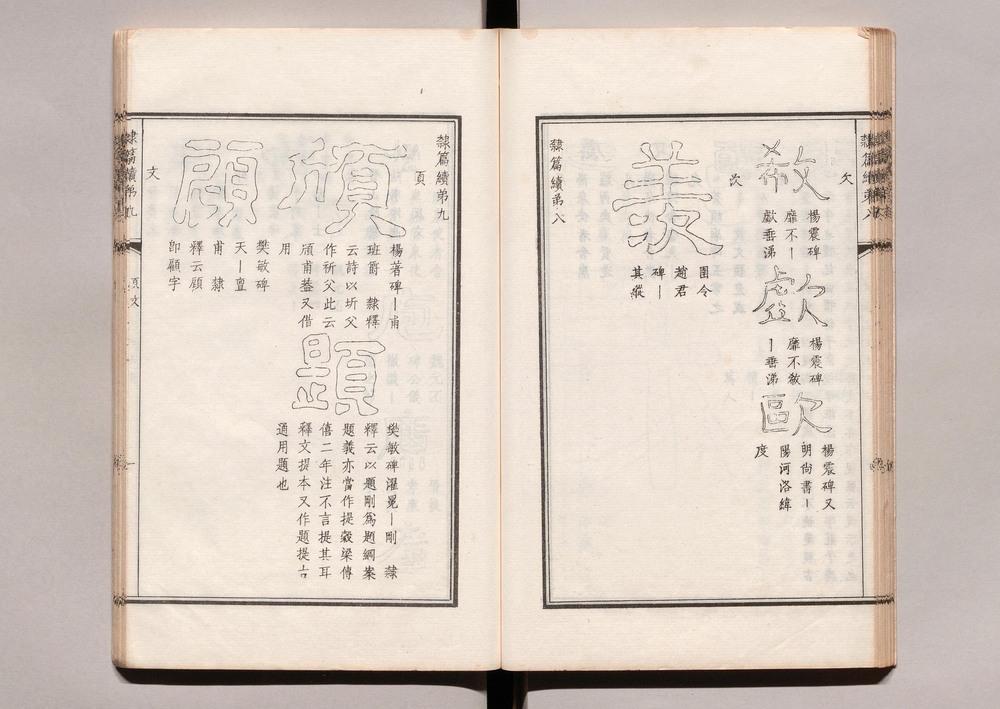 欠
欷
楊震碑
靡不丨
歔垂涕
歔
楊震碑
靡不欷
丨垂涕
歐
楊震碑又
明尙書丨
陽河洛緯
度
㳄
羨
圉令
趙君
碑丨
其縱
隸篇續第八
隸篇續第九
頁
頎
楊著碑丨甫
班爵 隸釋
云詩以圻父
作祈父此云
頎甫葢又借
用
題
樊敏碑濯冕丨剛 隸
釋云以題剛爲題綱案
題義亦當作提穀梁傳
僖二年注不言提其耳
釋文提本又作題提古
通用題也
顧
樊敏碑
天丨亶
甫 隸
釋云顧
卽顧字
文
隸篇續第九
頁文